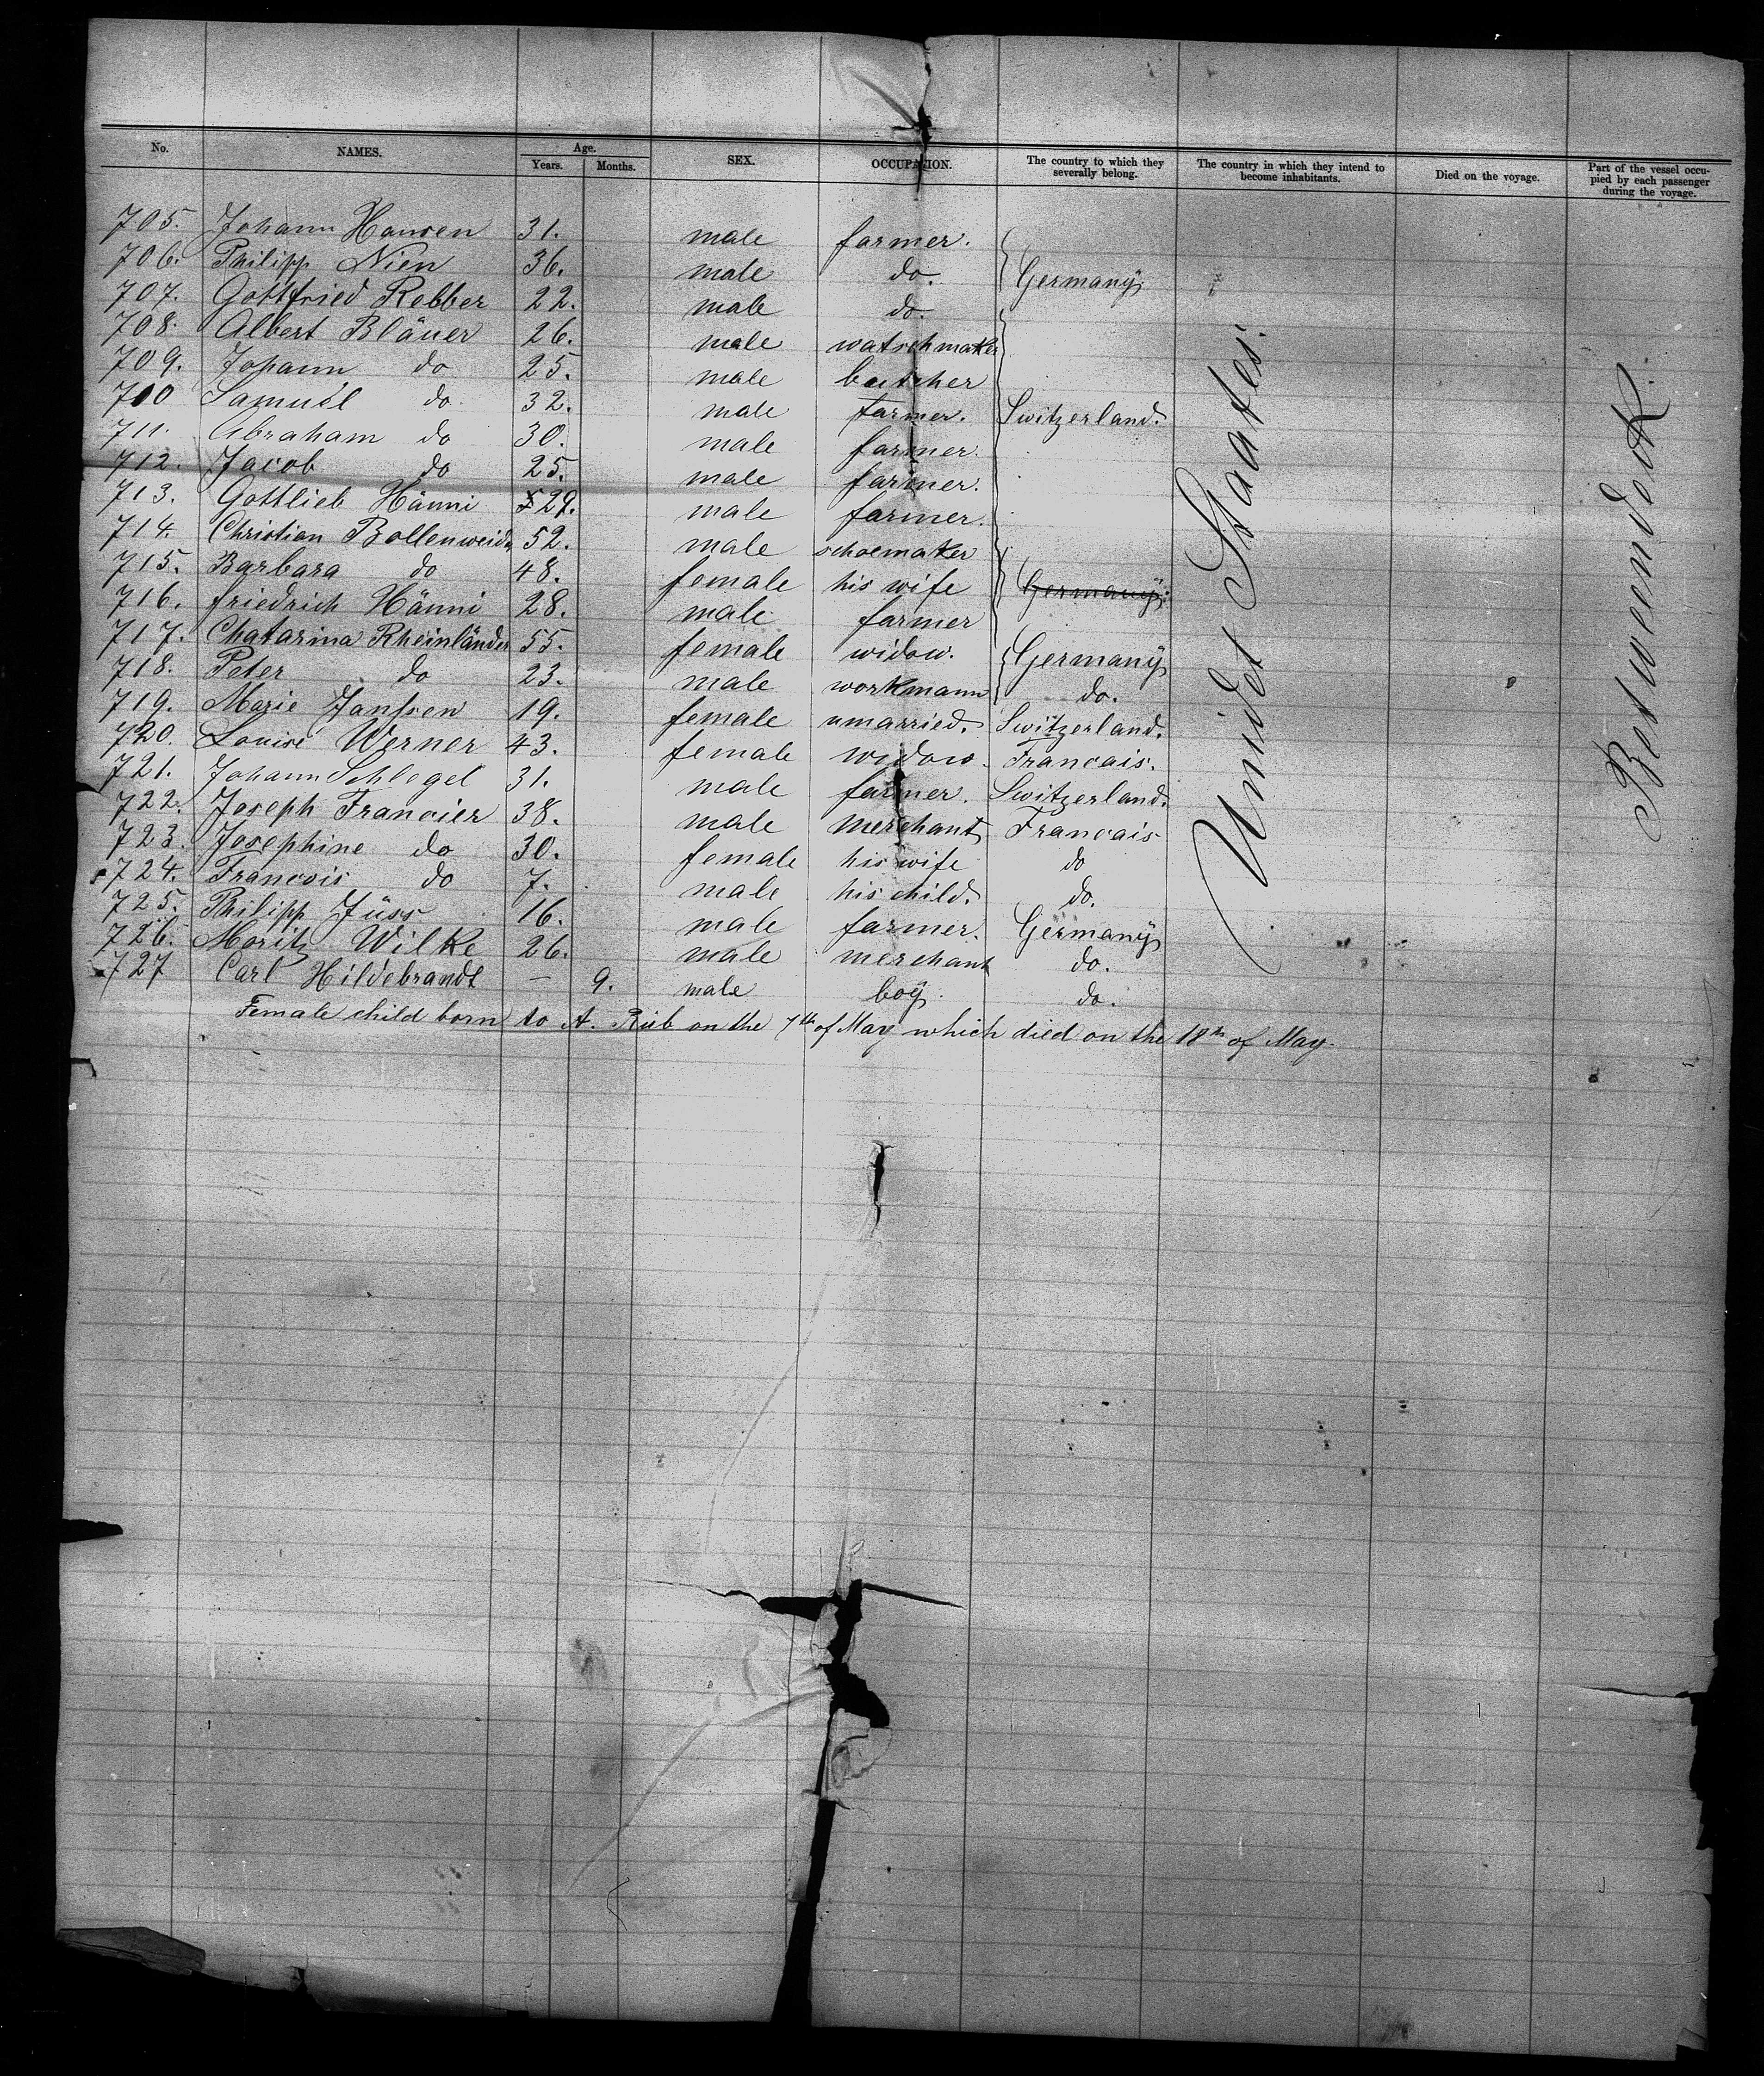 No. NAMES. Age. Years. Months. SEX. OCCUPATION. The country to which they severally belong. The country in which they intend to become inhabitants. Died on the voyage. Part of the vessel occupied by each passenger during the voyage.
705. Johann Hansen 31. male farmer.
706. Philipp Nien 36. male do. Germany
707. Gottfried Rebber 22. male do.
708. Albert Bläuer 26. male watschmaker
709. Johann do 25. male butcher
700 Samuel do 32. male farmer. Switzerland.
711. Abraham do 30. male farmer.
712. Jacob do 25. male farmer.
713. Gottlieb Hänni 29. male farmer.
714. Christian Bollenweider 52. male schoemaker
715. Barbara do 48. female his wife Germany.
716. friedrich Hänni 28. male farmer
717. Chatarina Rheinländer 55. female widow. Germany
718. Peter do 23. male workmann do.
719. Marie Janssen 19. female unmarried. Switzerland.
720. Louise Werner 43. female widow. Francais.
721. Johann Schlegel 31. male farmer. Switzerland.
722. Joseph Francier 38. male merchant Francais
723. Josephine do 30. female his wife do
724. Francois do 7. male his child. do.
725. Philipp Jüss 16. male farmer. Germany
726. Moritz Wilke 26. male merchant do.
727 Carl Hildebrandt — 9. male boy. do.
Female child born to A. Rieb on the 7th of May which died on the 18th of May.
Unidet Staates.
Betweendeck.